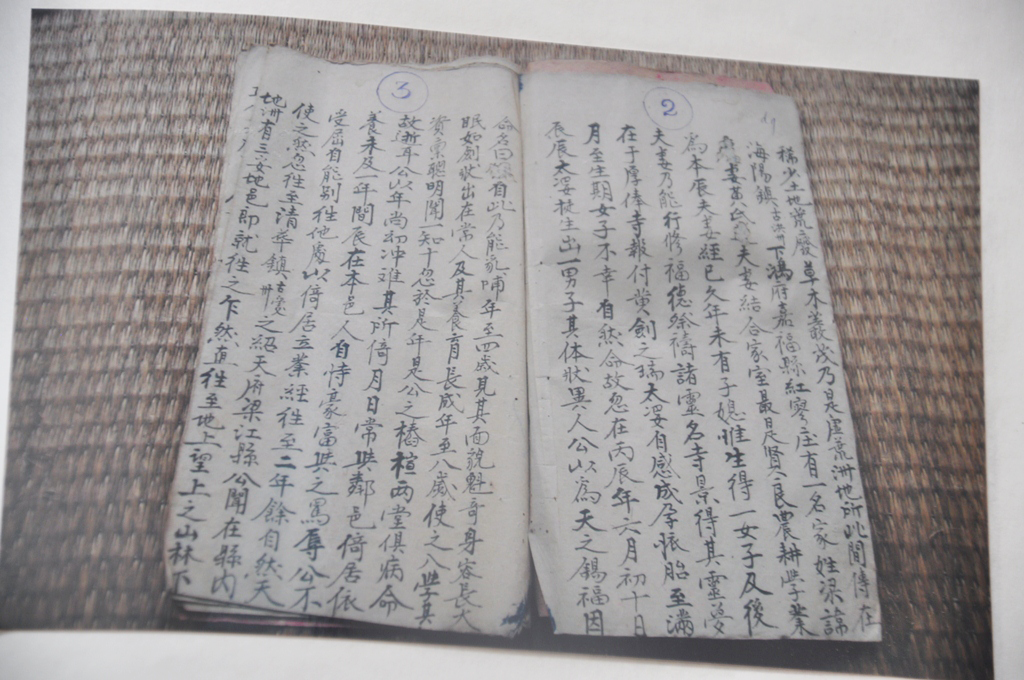 2
稀少土地荒廢草木叢茂乃是虛荒洲地所此間傳在
海陽鎮古洪下鴻府嘉福縣紅寥庄有一名家姓梁諱
妻黃氏夫妻結合家室最是賢良農耕學業
為本辰夫妻經已久年未有子媳惟生得一女子及後
夫妻乃能行修福德祭禱諸靈名寺景得其靈夢
在于摩俸寺報付黃劍之瑞太婆自感成孕懷胎至滿
月至生期女子不幸自然命故忽在丙辰年六月初十日
辰辰太婆挺生出一男子其体狀異人公以為天之錫福因
3
命名曰自此乃能乳哺年至四歲見其面貌魁奇身容長大
眼如刻狀出在常人及其養育長成年至八歲使之入學其
資稟聰明聞一知十忽於是年是公之椿楦两堂俱病命
故逝耳公以年尚初冲难其所倚月日常共鄰邑倚居依
養未及一年間辰在本邑人自恃豪富共之罵辱公不
受屈自能別徃他處以倚居立業經徃至二年餘自然天
使之然忽徃至清華鎮古愛州之紹天府梁江縣公聞在縣内
地有三女地邑即就徃之乍然直徃至地上望上之山林下